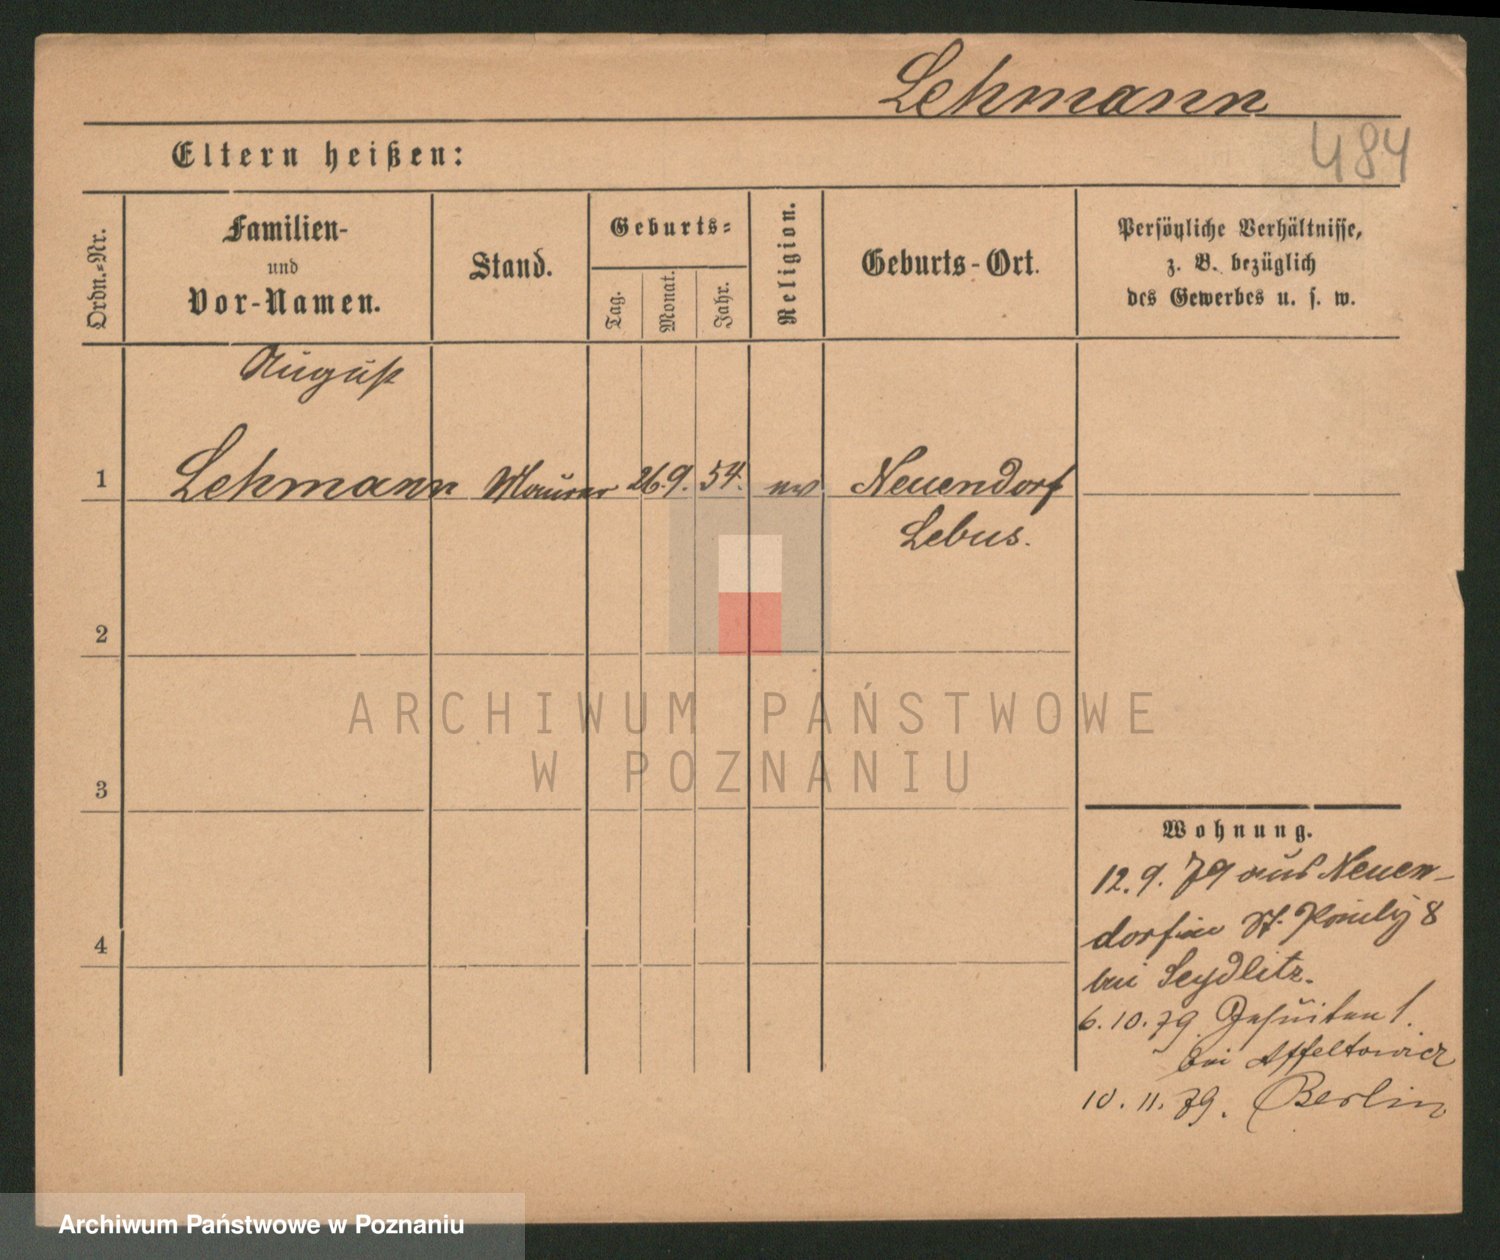 Lehmann
484
Eltern heißen:
Ordn.-Nr.
Familien-
und
Vor-Namen.
Stand.
Geburts-
Tag.
Monat.
Jahr.
Religion.
Geburts-Ort.
Persönliche Verhältnisse,
z. B. bezüglich
des Gewerbes u. s. w.
August
1
Lehmann Maurer 26. 9. 54. ev Neuendorf
Lebus.
2
ARCHIWUM PAŃSTWOWE
W POZNANIU
3
Wohnung.
12. 9. 79 aus Neuen-
dorf in St. 8
4
bei Seydlitz.
6. 10. 79 Jesuiten 1.
bei Affeltowicz
10. 11. 79. Berlin
Archiwum Państwowe w Poznaniu